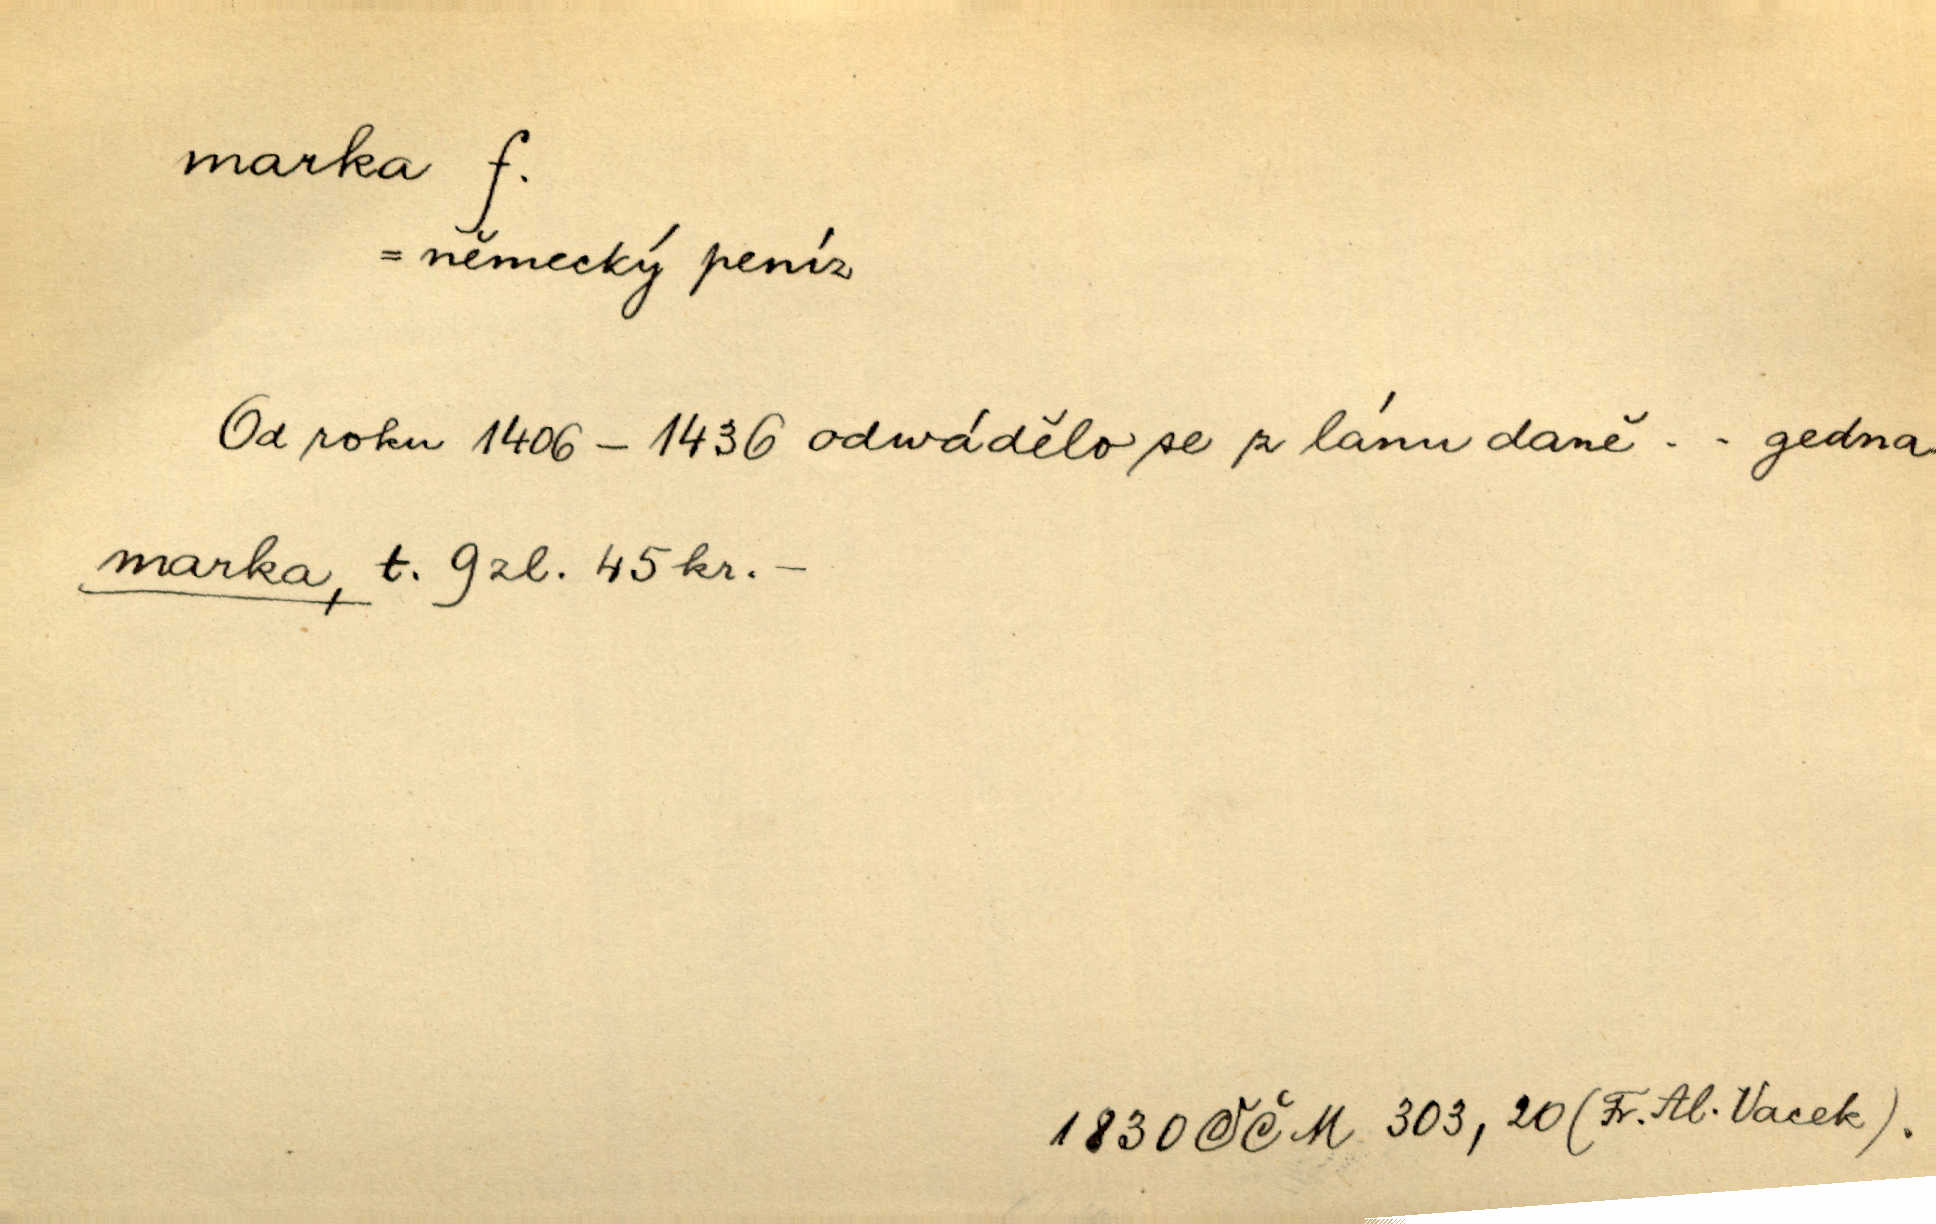 marka f.
= německý peníz
Od roku 1406 – 1436 odwádělo se z lánu daně . . gedna
marka, t. 9 zl. 45 kr. –
1830 ČČM 303, 20 (Fr. Al. Vacek).